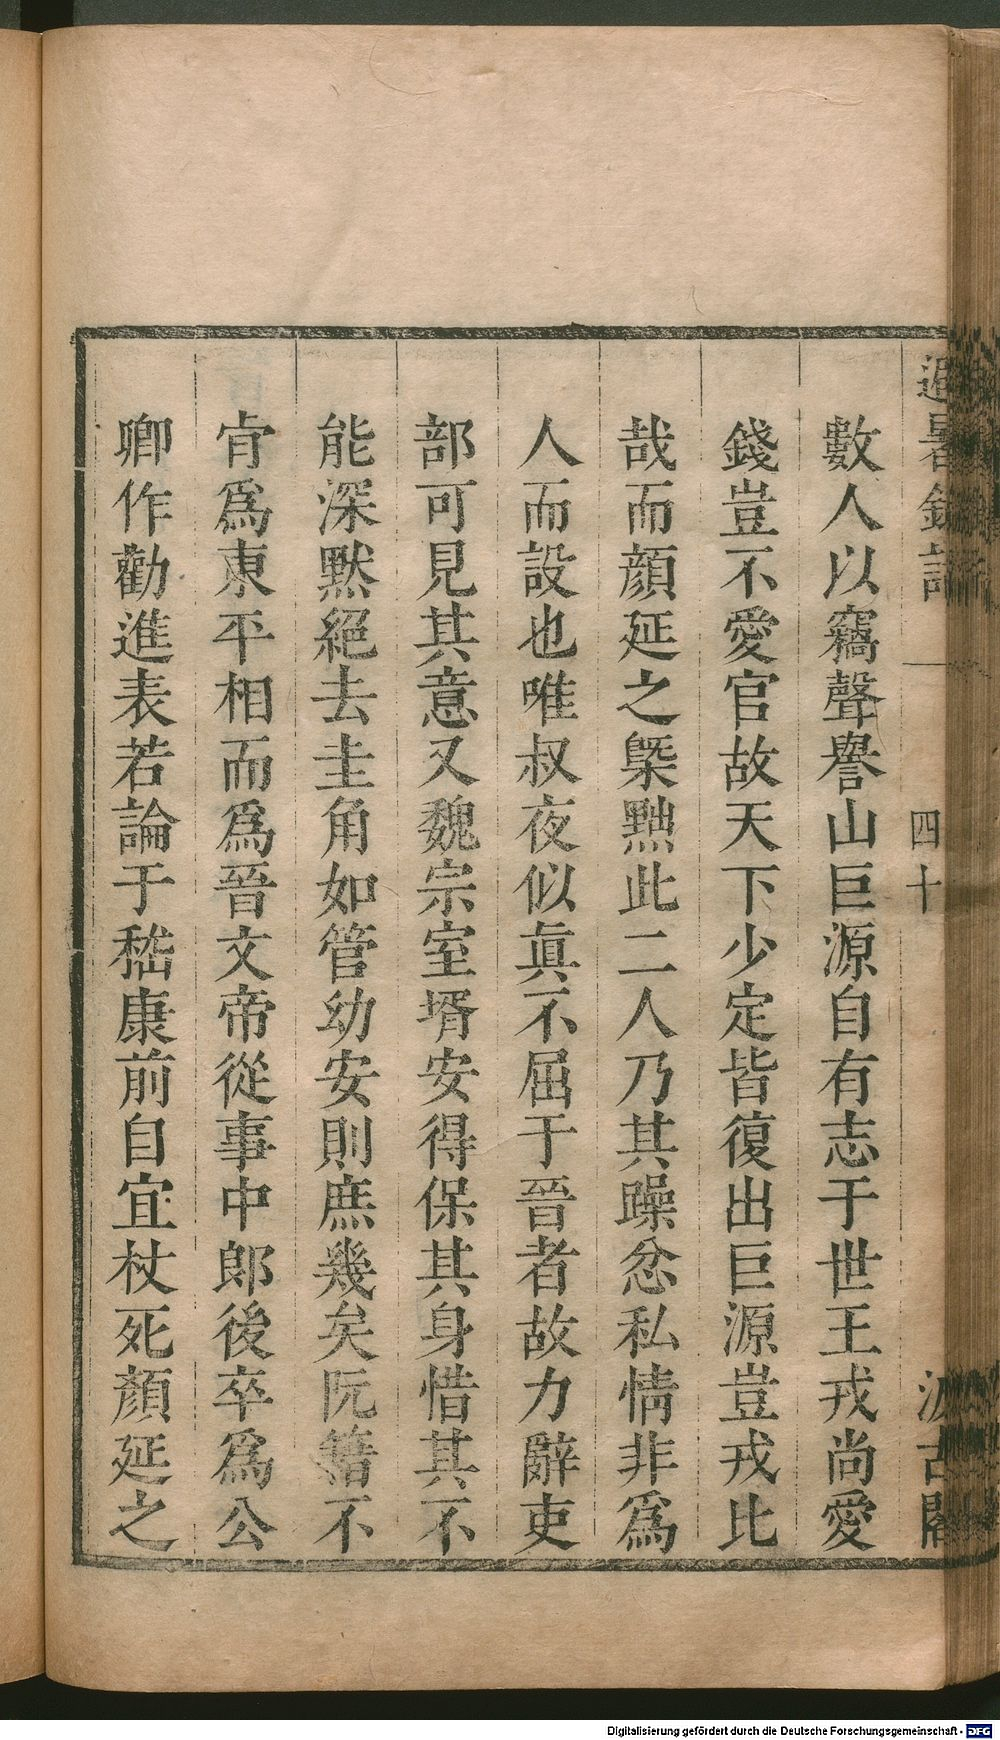 避暑錄話 四十 汲古閣
數人以竊聲譽山巨源自有志于世王戎尚愛
錢豈不愛官故天下少定皆復出巨源豈戎比
哉而顏延之槩黜此二人乃其躁忿私情非爲
人而設也唯叔夜似眞不屈于晉者故力辭吏
部可見其意又魏宗室壻安得保其身惜其不
能深默絕去圭角如管幼安則庶幾矣阮籍不
肯爲東平相而爲晉文帝從事中郎後卒爲公
卿作勸進表若論于嵇康前自宜杖死顏延之
Digitalisierung gefördert durch die Deutsche Forschungsgemeinschaft - DFG